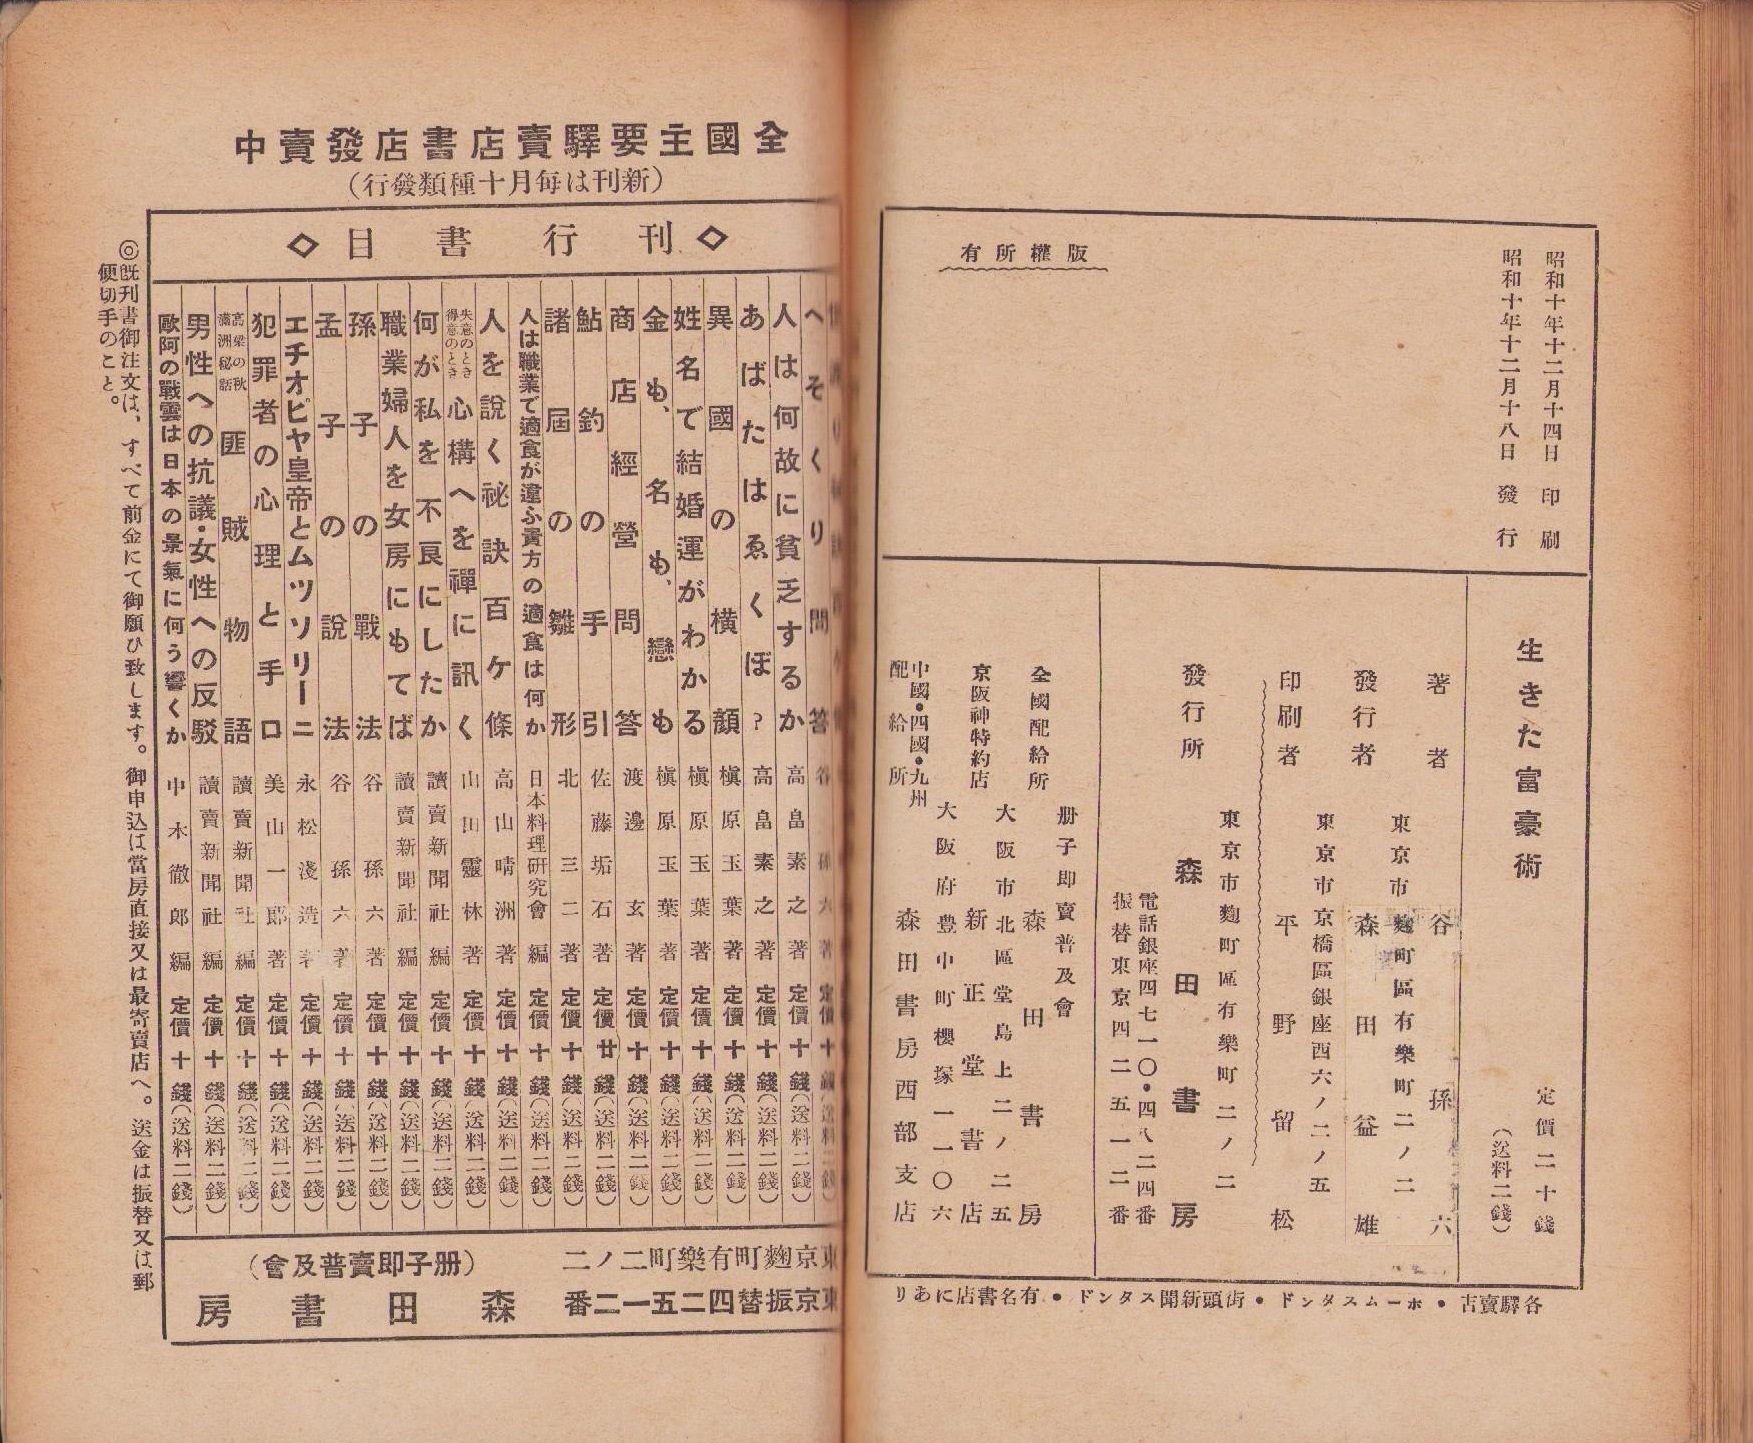 昭和十年十二月十四日印刷
昭和十年十二月十八日發行
版權所有
生きた富豪術
定價二十錢
（送料二錢）
著者 谷孫六
東京市麴町區有樂町二ノ二
發行者 森田益雄
東京市京橋區銀座西六ノ二ノ五
印刷者 平野留松
東京市麴町區有樂町二ノ二
發行所 森田書房
電話銀座四七一〇・四八二四番
振替東京四二五一二番
册子即賣普及會
全國配給所 森田書房
大阪市北區堂島上二ノ二五
京阪神特約店 新正堂書店
大阪府豊中町櫻塚一一〇六
中國・四國・九州
配給所 森田書房西部支店
各驛賣店・ホームスタンド・街頭新聞スタンド・有名書店にあり
全國主要驛賣店書店發賣中
（新刊は每月十種類發行）
◇刊行書目◇
へそくり問答 谷孫六著 定價十錢（送料二錢）
人は何故に貧乏するか 高畠素之著 定價十錢（送料二錢）
あばたはゑくぼ？ 高畠素之著 定價十錢（送料二錢）
異國の横顔 槇原玉葉著 定價十錢（送料二錢）
姓名で結婚運がわかる 槇原玉葉著 定價十錢（送料二錢）
金も、名も、戀も 槇原玉葉著 定價十錢（送料二錢）
商店經營問答 渡邊玄著 定價十錢（送料二錢）
鮎釣の手引 佐藤垢石著 定價廿錢（送料二錢）
諸屆の雛形 北三二著 定價十錢（送料二錢）
人は職業で適食が違ふ貴方の適食は何か 日本料理研究會編 定價十錢（送料二錢）
人を說く祕訣百ケ條 高山晴洲著 定價十錢（送料二錢）
失意のとき得意のとき心構へを禪に訊く 山田靈林著 定價十錢（送料二錢）
何が私を不良にしたか 讀賣新聞社編 定價十錢（送料二錢）
職業婦人を女房にもてば 讀賣新聞社編 定價十錢（送料二錢）
孫子の戰法 谷孫六著 定價十錢（送料二錢）
孟子の說法 谷孫六著 定價十錢（送料二錢）
エチオピヤ皇帝とムツソリーニ 永松淺造著 定價十錢（送料二錢）
犯罪者の心理と手口 美山一郎著 定價十錢（送料二錢）
高梁の秋滿洲秘話匪賊物語 讀賣新聞社編 定價十錢（送料二錢）
男性への抗議・女性への反駁 讀賣新聞社編 定價十錢（送料二錢）
歐阿の戰雲は日本の景氣に何う響くか 中木徹郎編 定價十錢（送料二錢）
東京麴町有樂町二ノ二（册子即賣普及會）
東京振替四二五一二番 森田書房
◎既刊書御注文は、すべて前金にて御願ひ致します。御申込は當房直接又は最寄賣店へ。送金は振替又は郵
便切手のこと。